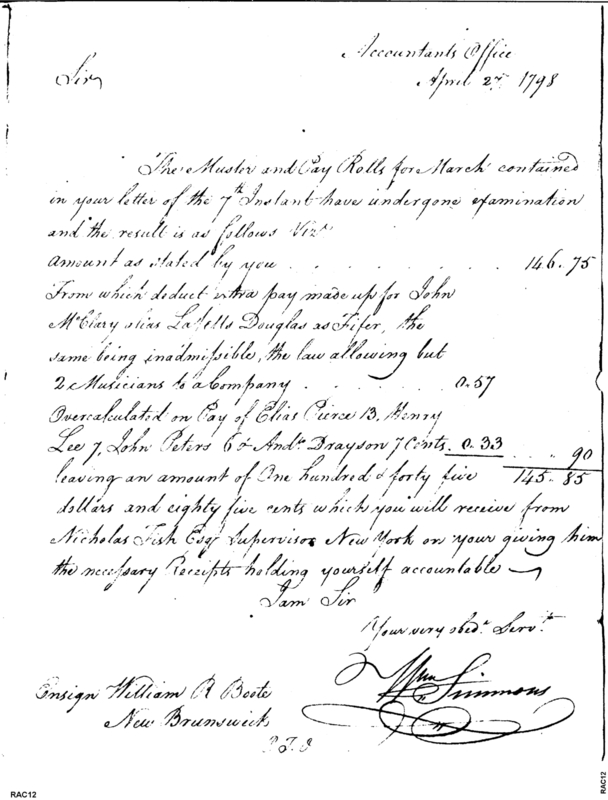 Accountants Office
Sir April 27, 1798
The Muster and Pay Rolls for March contained
in your letter of the 7th Instant have undergone examination
and the result is as follows Vizt
Amount as stated by you . . . . . . 146.75
From which deduct extra pay made up for John
McClary alias Douglas as Fifer, the
same being inadmissible, the law allowing but
2 Musicians to a Company . . . . . 0.57
Overcalculated on Pay of Elias Pierce 13, Henry
Lee 7, John Peters 6 & Andw Drayson 7 Cents. 0.33 . . . 90
leaving an amount of One hundred & forty five 145.85
dollars and eighty five cents which you will receive from
Nicholas Fish Esqr Supervisor New York on your giving him
the necessary Receipts holding yourself accountable
I am Sir
Your very obedt Servt
Wm Simmons
Ensign William R Boote
New Brunswick
RAC12
RAC12